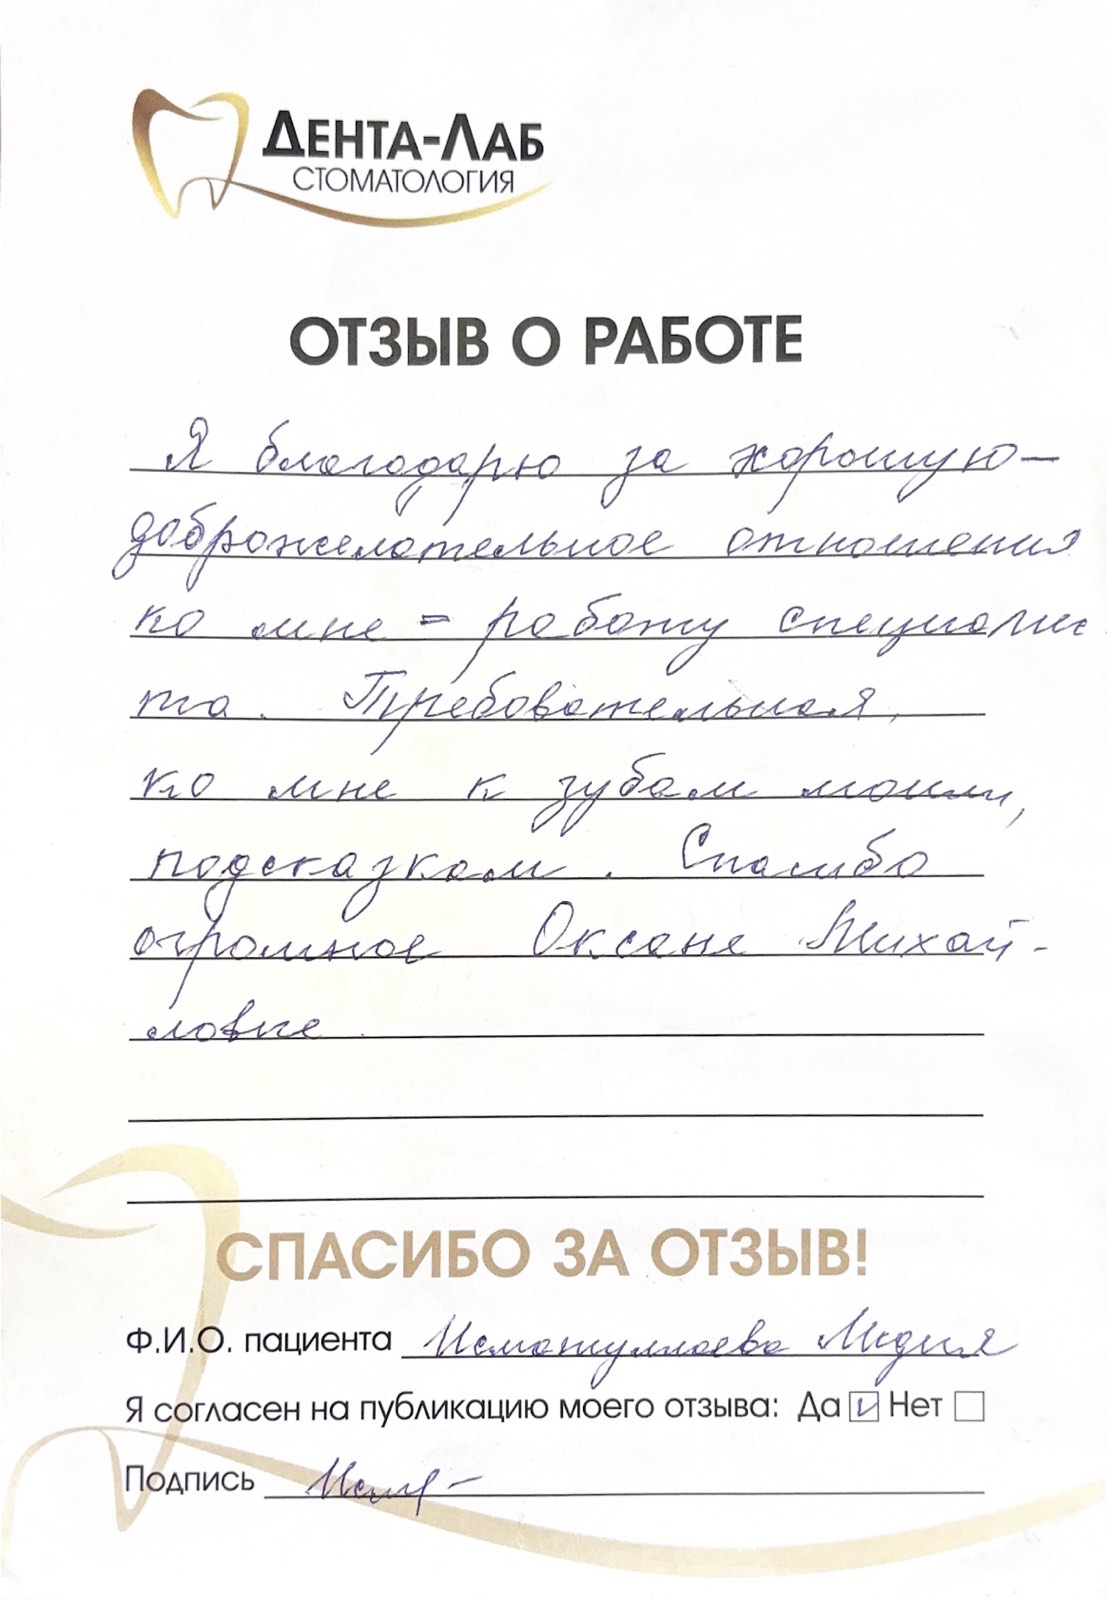 ДЕНТА-ЛАБ
СТОМАТОЛОГИЯ
ОТЗЫВ О РАБОТЕ
Я благодарю за хорошую-
доброжелательное отношения
ко мне = работу специалис
та. Требовательная,
ко мне к зубам моим,
подсказкам. Спасибо
огромное Оксане Михай-
ловне.
СПАСИБО ЗА ОТЗЫВ!
Ф.И.О. пациента Исматуллаева Лидия
Я согласен на публикацию моего отзыва: Да v Нет
Подпись